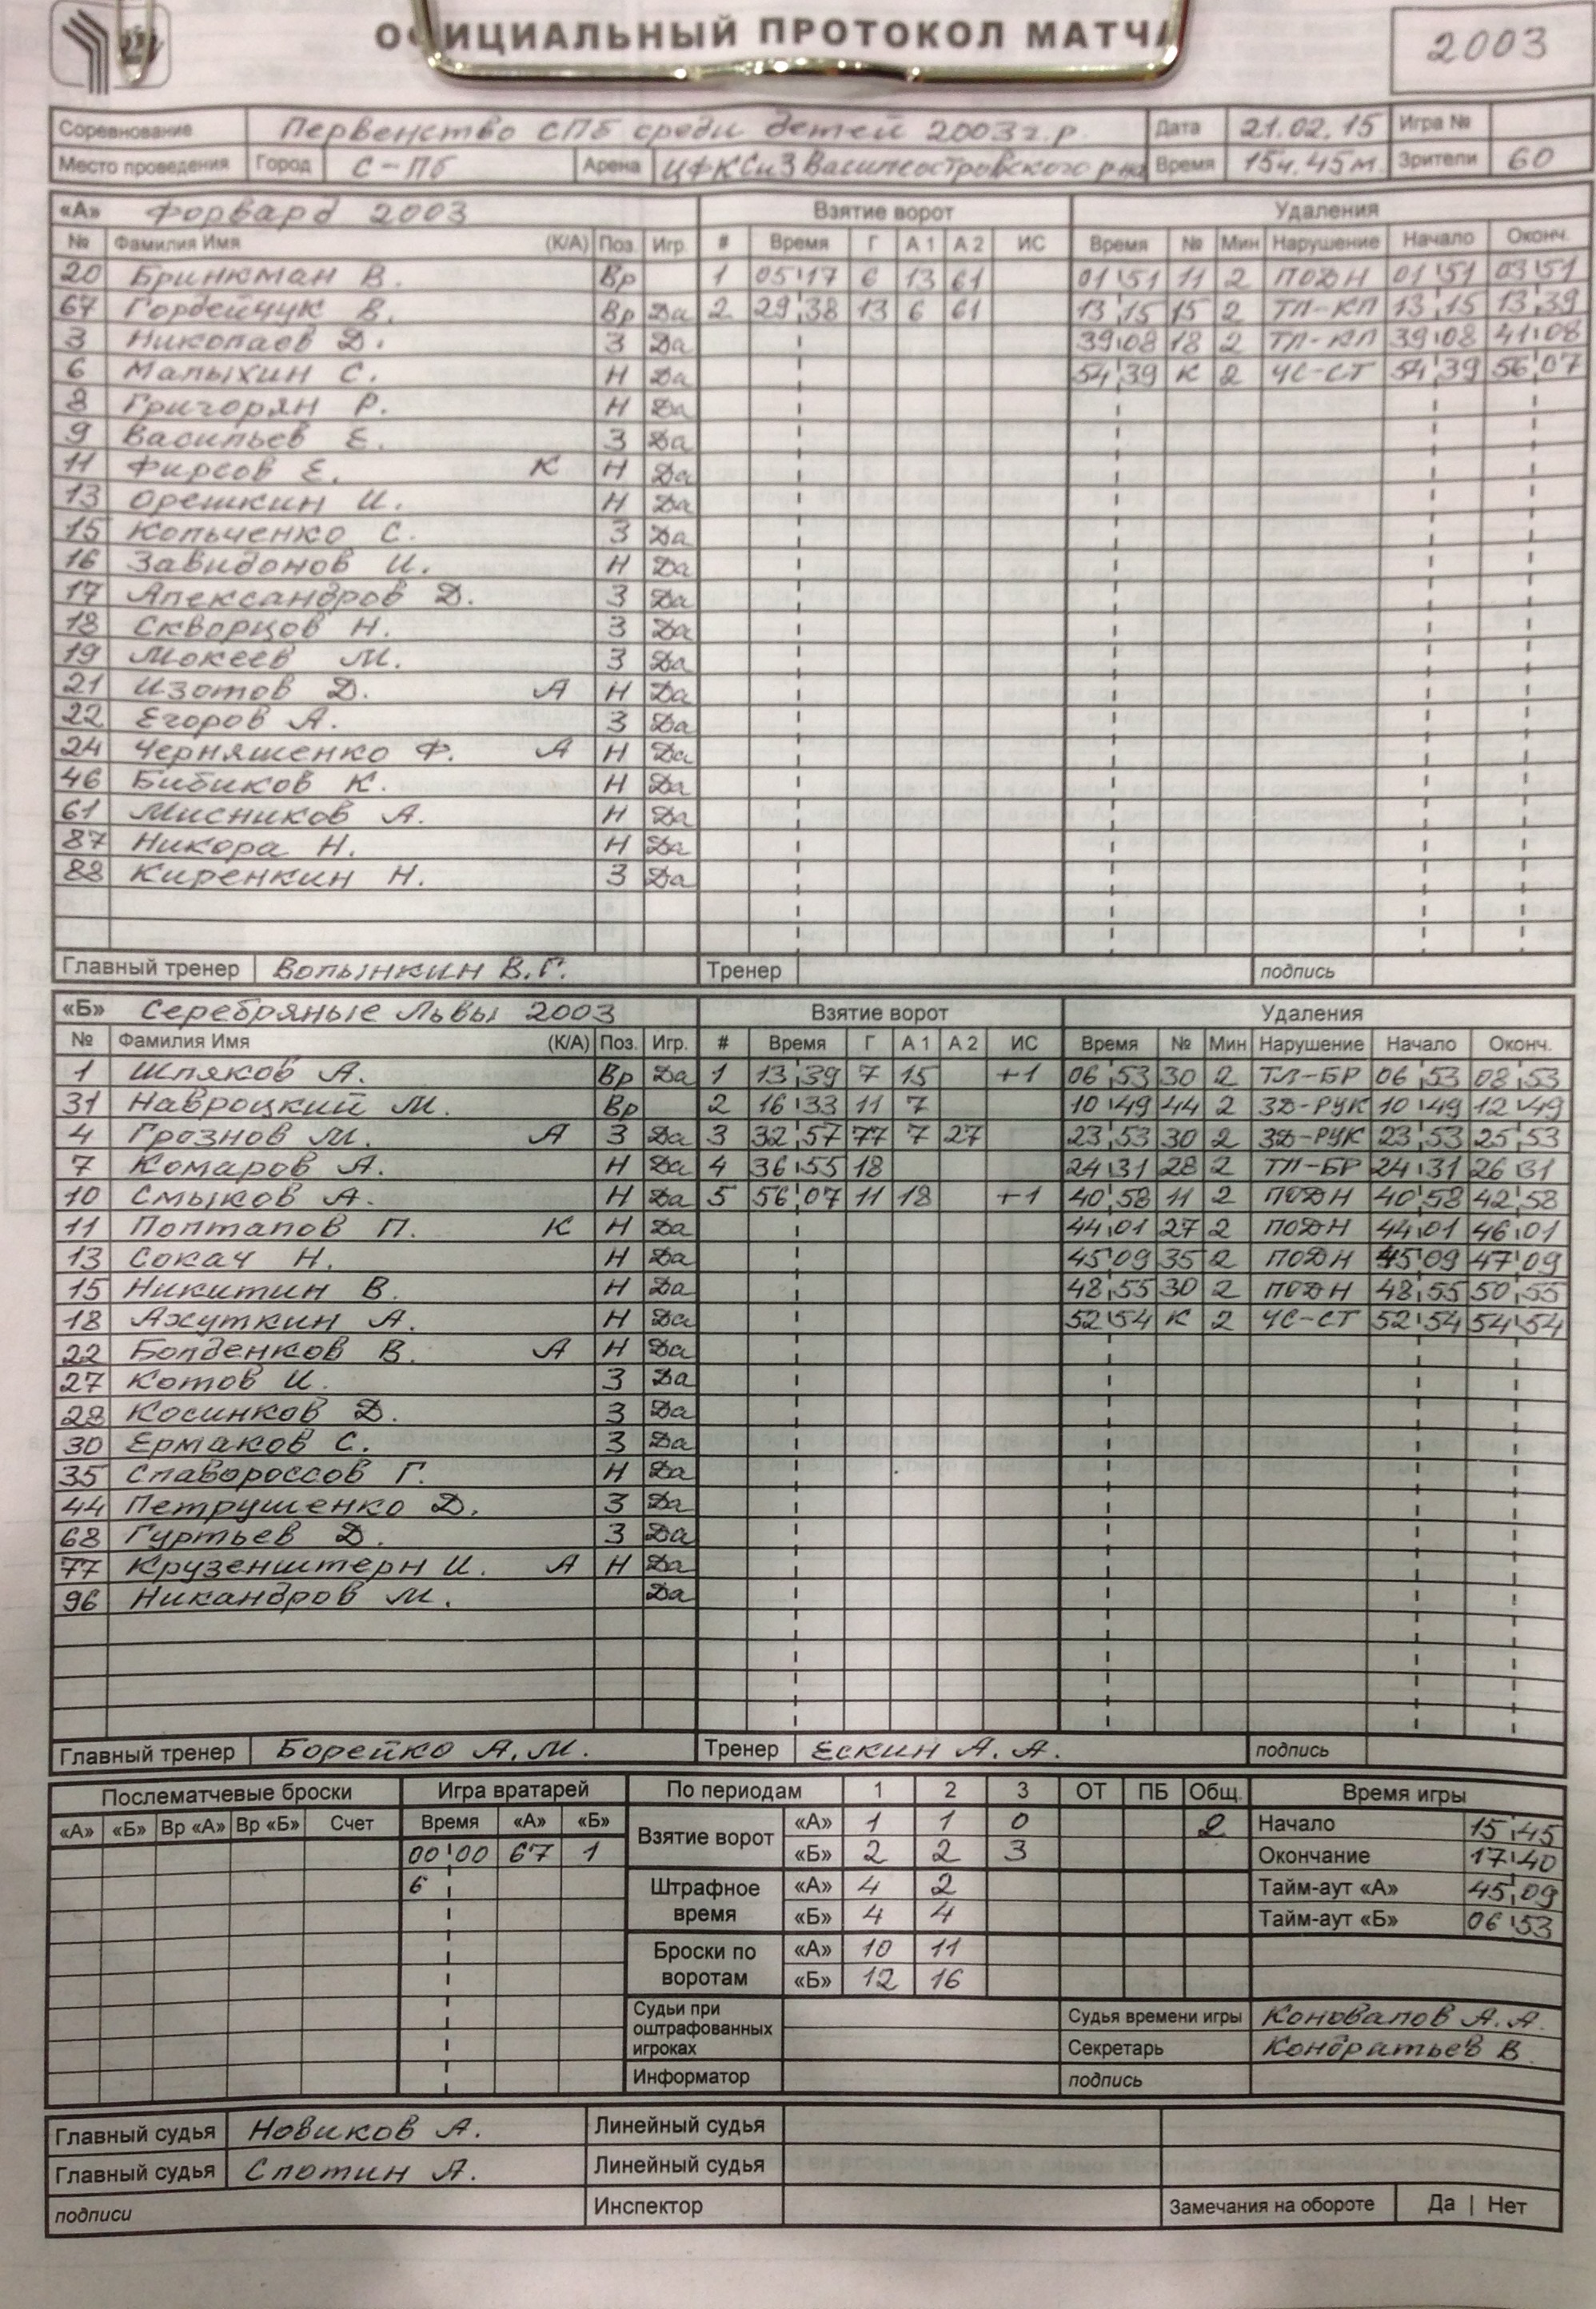 ОФИЦИАЛЬНЫЙ ПРОТОКОЛ МАТЧА
2003
Соревнование Первенство СПб среди детей 2003г.р. Дата 21.02.15 Игра №
Место проведения Город С-Пб Арена ЦФКСиЗ Василеостровского р-на Время 15ч.45м. Зрители 60
«А» Форвард 2003 Взятие ворот Удаления
№ Фамилия Имя (К/А) Поз. Игр. # Время Г А 1 А 2 ИС Время № Мин Нарушение Начало Оконч.
20 Бринкман В. Вр 1 05 17 6 13 61 01 51 11 2 ПОДН 01 51 03 51
67 Гордейчук В. Вр Да 2 29 38 13 6 61 13 15 15 2 ТЛ-КЛ 13 15 13 39
3 Николаев Д. З Да 39 08 18 2 ТЛ-КЛ 39 08 41 08
6 Малыхин С. Н Да 54 39 К 2 ЧС-СТ 54 39 56 07
8 Григорян Р. Н Да
9 Васильев Е. З Да
11 Фирсов Е. К Н Да
13 Орешкин И. Н Да
15 Кольченко С. З Да
16 Завидонов И. Н Да
17 Александров Д. З Да
18 Скворцов Н. З Да
19 Мокеев М. З Да
21 Изотов Д. А Н Да
22 Егоров А. З Да
24 Черняшенко Ф. А Н Да
46 Бибиков К. Н Да
61 Мисников А. Н Да
87 Никора Н. Н Да
88 Киренкин Н. З Да
Главный тренер Волынкин В.Г. Тренер подпись
«Б» Серебряные Львы 2003 Взятие ворот Удаления
№ Фамилия Имя (К/А) Поз. Игр. # Время Г А 1 А 2 ИС Время № Мин Нарушение Начало Оконч.
1 Шляков А. Вр Да 1 13 39 7 15 +1 06 53 30 2 ТЛ-БР 06 53 08 53
31 Навроцкий М. Вр 2 16 33 11 7 10 49 44 2 ЗД-РУК 10 49 12 49
4 Грознов М. А З Да 3 32 57 77 7 27 23 53 30 2 ЗД-РУК 23 53 25 53
7 Комаров А. Н Да 4 36 55 18 24 31 28 2 ТЛ-БР 24 31 26 31
10 Смыков А. Н Да 5 56 07 11 18 +1 40 58 11 2 ПОДН 40 58 42 58
11 Полтапов П. К Н Да 44 01 27 2 ПОДН 44 01 46 01
13 Сокач Н. Н Да 45 09 35 2 ПОДН 45 09 47 09
15 Никитин В. Н Да 48 55 30 2 ПОДН 48 55 50 55
18 Ахуткин А. Н Да 52 54 К 2 ЧС-СТ 52 54 54 54
22 Болденков В. А Н Да
27 Котов И. З Да
28 Косинков Д. З Да
30 Ермаков С. З Да
35 Славороссов Г. Н Да
44 Петрушенко Д. З Да
68 Гуртьев Д. З Да
77 Крузенштерн И. А Н Да
96 Никандров М. Да
Главный тренер Борейко А.М. Тренер Ескин А.А. подпись
Послематчевые броски Игра вратарей По периодам 1 2 3 ОТ ПБ Общ. Время игры
«А» «Б» Вр «А» Вр «Б» Счет Время «А» «Б» Взятие ворот «А» 1 1 0 2 Начало 15 45
00 00 67 1 «Б» 2 2 3 Окончание 17 40
6 Штрафное время «А» 4 2 Тайм-аут «А» 45 09
«Б» 4 4 Тайм-аут «Б» 06 53
Броски по воротам «А» 10 11
«Б» 12 16
Судьи при оштрафованных игроках Судья времени игры Коновалов А.А.
Секретарь Кондратьев В
Информатор подпись
Главный судья Новиков А. Линейный судья
Главный судья Слотин А. Линейный судья
подписи Инспектор Замечания на обороте Да | Нет